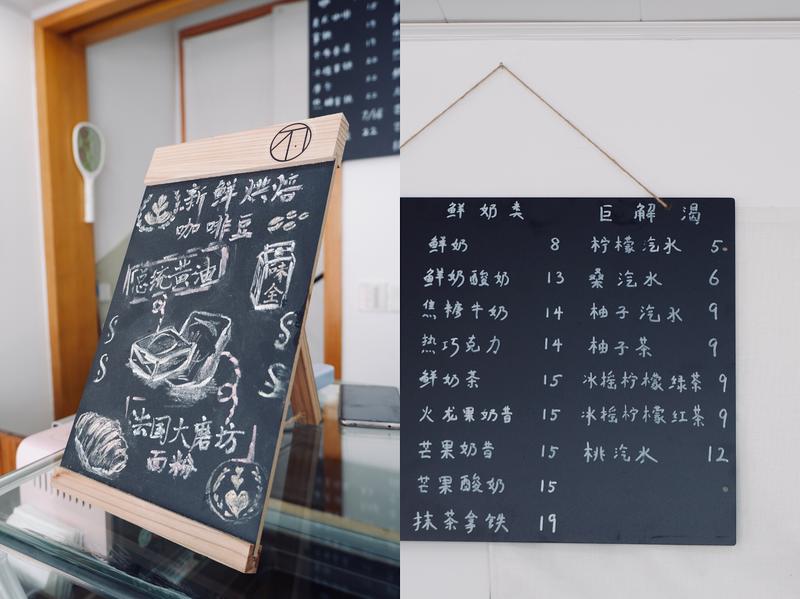 新鲜烘焙
咖啡豆
总统黄油
味全
法国大磨坊
面粉
鲜奶类
鲜奶 8
鲜奶酸奶 13
焦糖牛奶 14
热巧克力 14
鲜奶茶 15
火龙果奶昔 15
芒果奶昔 15
芒果酸奶 15
抹茶拿铁 19
巨解渴
柠檬汽水 5
桑汽水 6
柚子汽水 9
柚子茶 9
冰摇柠檬绿茶 9
冰摇柠檬红茶 9
桃汽水 12